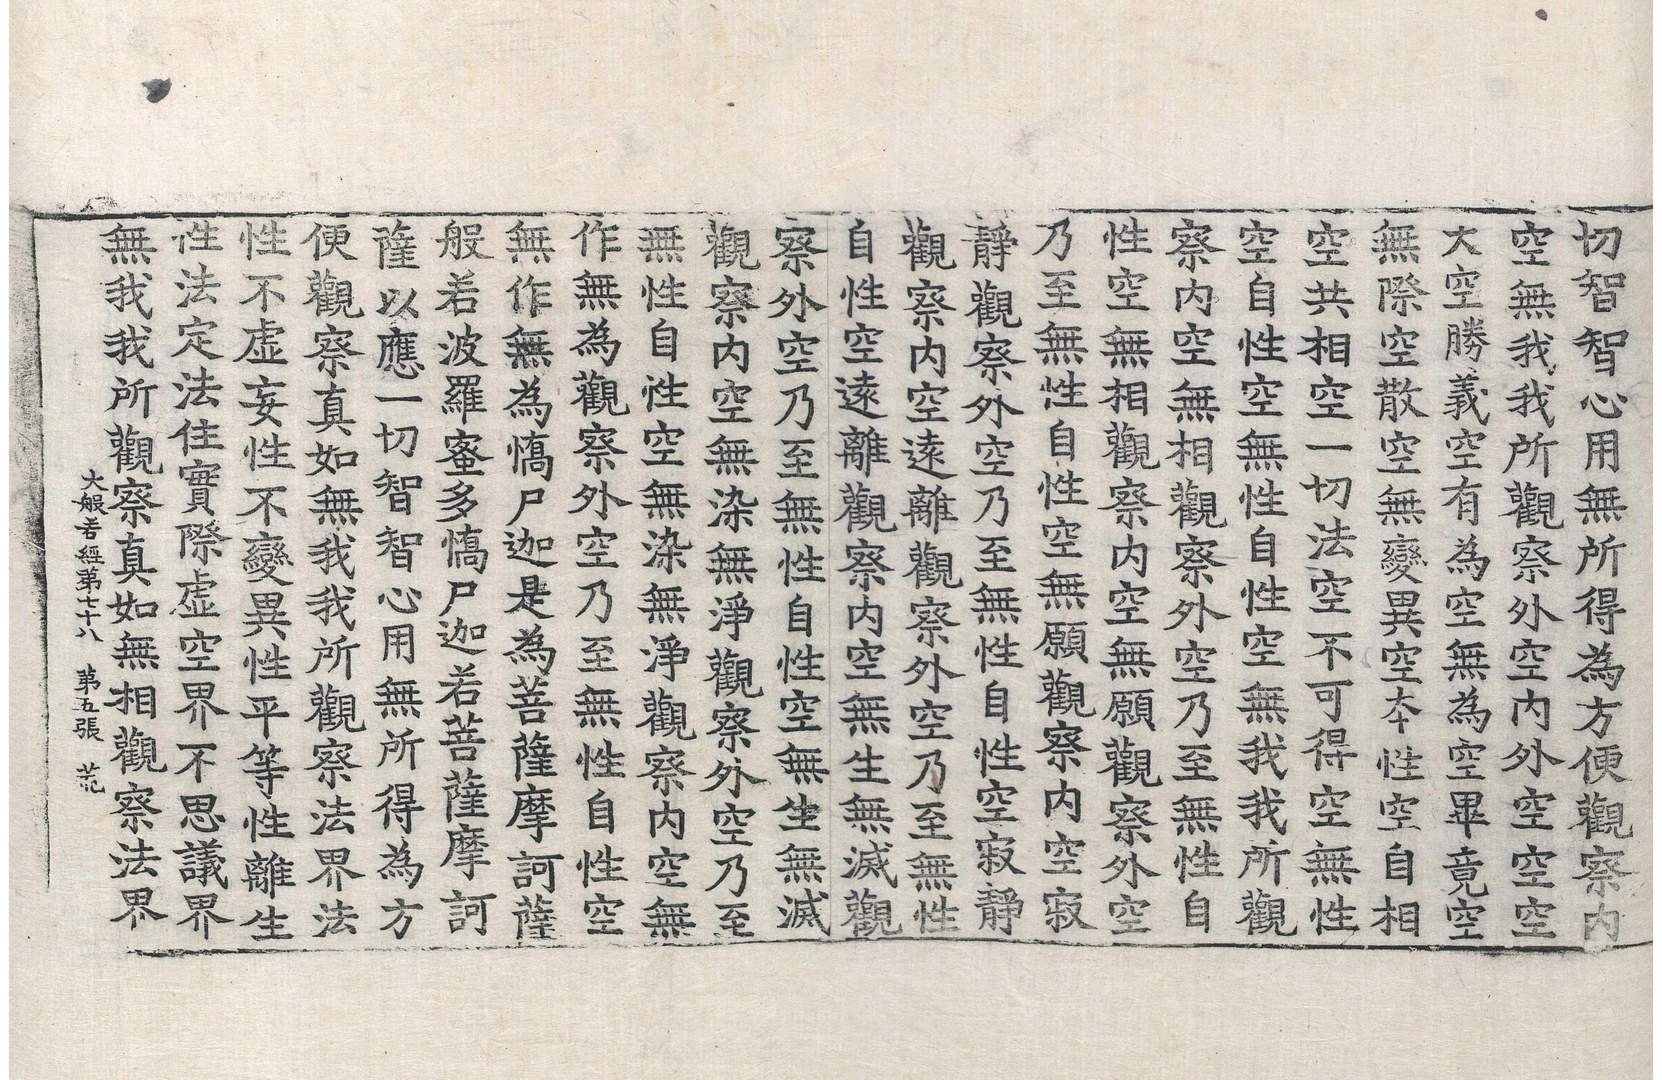 切智智心用無所得為方便觀察内
空無我我所觀察外空内外空空空
大空勝義空有為空無為空畢竟空
無際空散空無變異空本性空自相
空共相空一切法空不可得空無性
空自性空無性自性空無我我所觀
察内空無相觀察外空乃至無性自
性空無相觀察内空無願觀察外空
乃至無性自性空無願觀察内空寂
靜觀察外空乃至無性自性空寂靜
觀察内空遠離觀察外空乃至無性
自性空遠離觀察内空無生無滅觀
察外空乃至無性自性空無生無滅
觀察内空無染無淨觀察外空乃至
無性自性空無染無淨觀察内空無
作無為觀察外空乃至無性自性空
無作無為憍尸迦是為菩薩摩訶薩
般若波羅蜜多憍尸迦若菩薩摩訶
薩以應一切智智心用無所得為方
便觀察真如無我我所觀察法界法
性不虛妄性不變異性平等性離生
性法定法住實際虛空界不思議界
無我我所觀察真如無相觀察法界
大般若經第七十八　第五張　荒